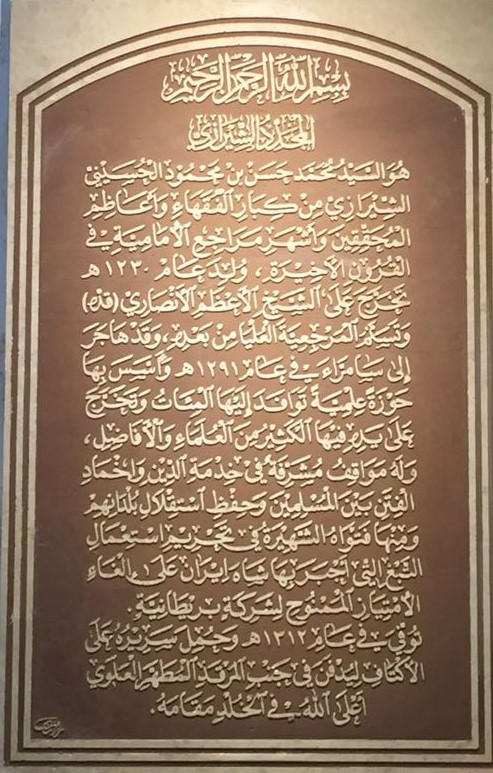 بسم الله الرحمن الرحيم
المجدد الشيرازي
هو السيد محمد حسن بن محمود الحسيني
الشيرازي من كبار الفقهاء وأعاظم
المحققين وأشهر مراجع الأمامية في
القرون الأخيرة ، ولد عام ١٢٣٠ هـ
تخرج على الشيخ الأعظم الأنصاري (قده)
وتسلم المرجعية العليا من بعده، وقد هاجر
إلى سامراء في عام ١٢٩١ هـ وأسس بها
حوزة علمية توافد إليها المئات وتخرج
على يديه فيها الكثير من العلماء والأفاضل ،
وله مواقف مشرفة في خدمة الدين وإخماد
الفتن بين المسلمين وحفظ استقلال بلدانهم
ومنها فتواه الشهيرة في تحريم استعمال
التبغ التي أجبر بها شاه ايران على الغاء
الأمتياز الممنوح لشركة بريطانية .
توفي في عام ١٣١٢ هـ وحمل سريره على
الأكتاف ليدفن في جنب المرقد المطهر العلوي
أعلى الله في الخلد مقامه .